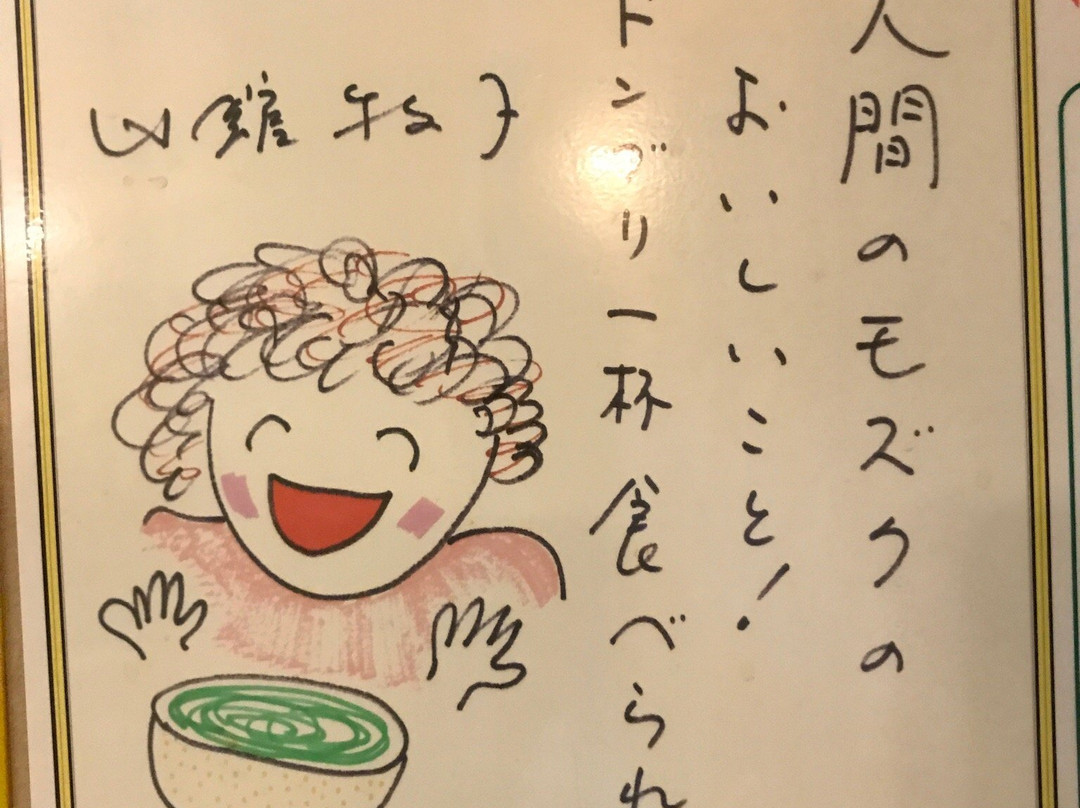 人間のモズクの
おいしいこと!
ドンブリ一杯食べられ
牧子